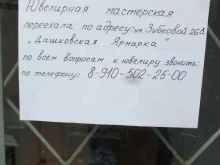 Ювелирная мастерская
переехала по адресу: ул. Зибковой 26А
"Дашковская Ярмарка"
по всем вопросам к ювелиру звонить:
по телефону: 8-910-502-25-00